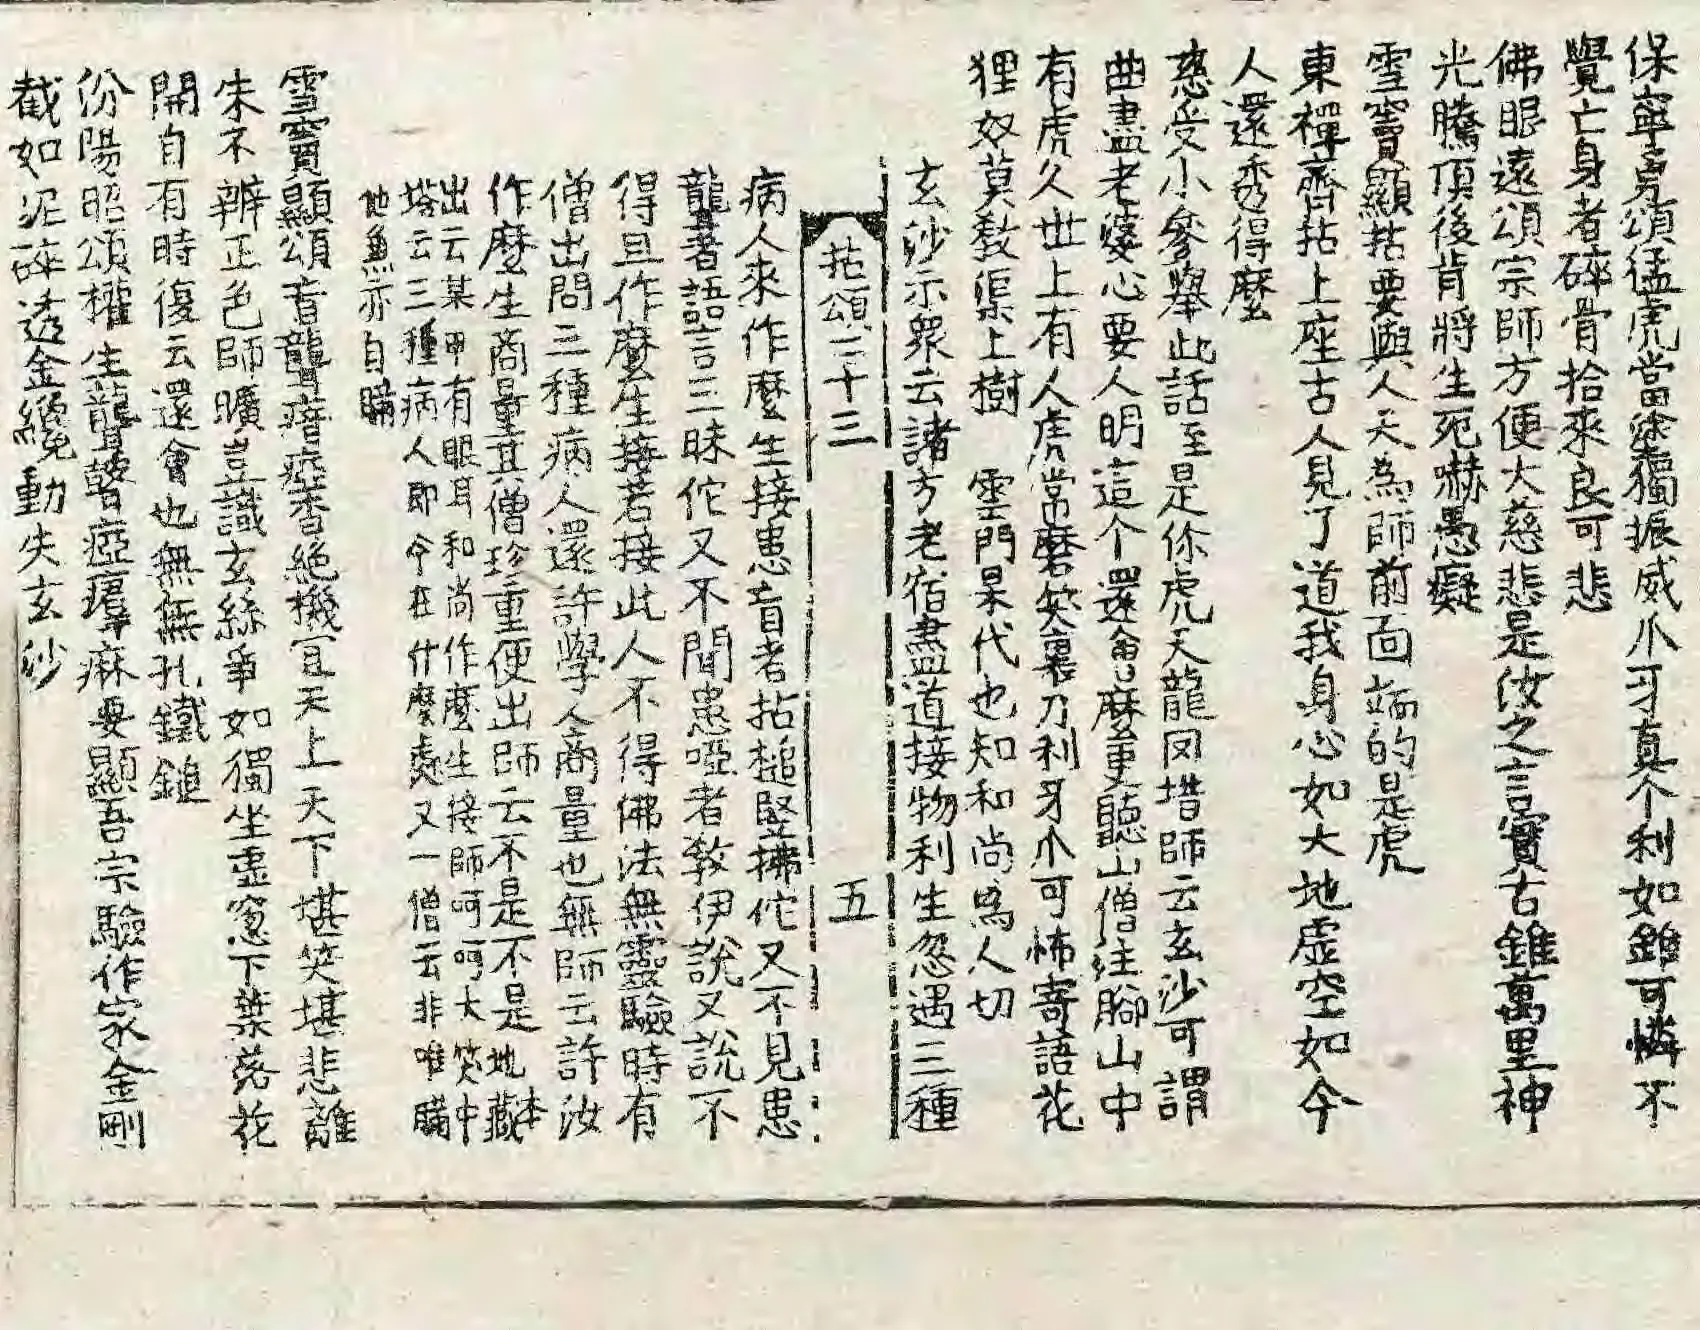 保寧勇頌猛虎當途獨振威爪牙真个利如錐可憐不
覺亡身者碎骨拾來良可悲
佛眼遠頌宗師方便大慈悲是汝之言實古錐萬里神
光騰頂後肯將生死嚇愚癡
雪竇顯拈要與人天為師前面端的是虎
東禪齊拈上座古人見了道我身心如大地虛空如今
人還透得麼
慈受小參舉此話至是你虎天龍
師云玄沙可謂
曲盡老婆心要人明這个還會麼更聽山僧注脚山中
有虎久世上有人虎常磨笑裏刀利牙爪可怖寄語花
狸奴莫敎渠上樹 雲門杲代也知和尚爲人切
玄沙示眾云諸方老宿盡道接物利生忽遇三種
拈頌二十三 五
病人來作麼生接患盲者拈槌竪拂佗又不見患
聾者語言三昧佗又不聞患啞者敎伊說又說不
得且作麼生接若接此人不得佛法無靈驗時有
僧出問三種病人還許學人商量也無師云許汝
作麼生商量其僧珍重便出師云不是不是地藏本
出云某甲有眼耳和尚作麼生接師呵呵大笑中
塔云三種病人即今在什麼處又一僧云非唯瞞
他兼亦自瞞
雪竇顯頌盲聾瘖瘂杳絕機冝天上天下堪笑堪悲離
朱不辨正色師曠豈識玄絲爭如獨坐虛窓下葉落花
開自有時復云還會也無無孔鐵鎚
汾陽昭頌權生聾瞽瘂
麻要顯吾宗驗作家金剛
截如泥碎透金纔動失玄沙